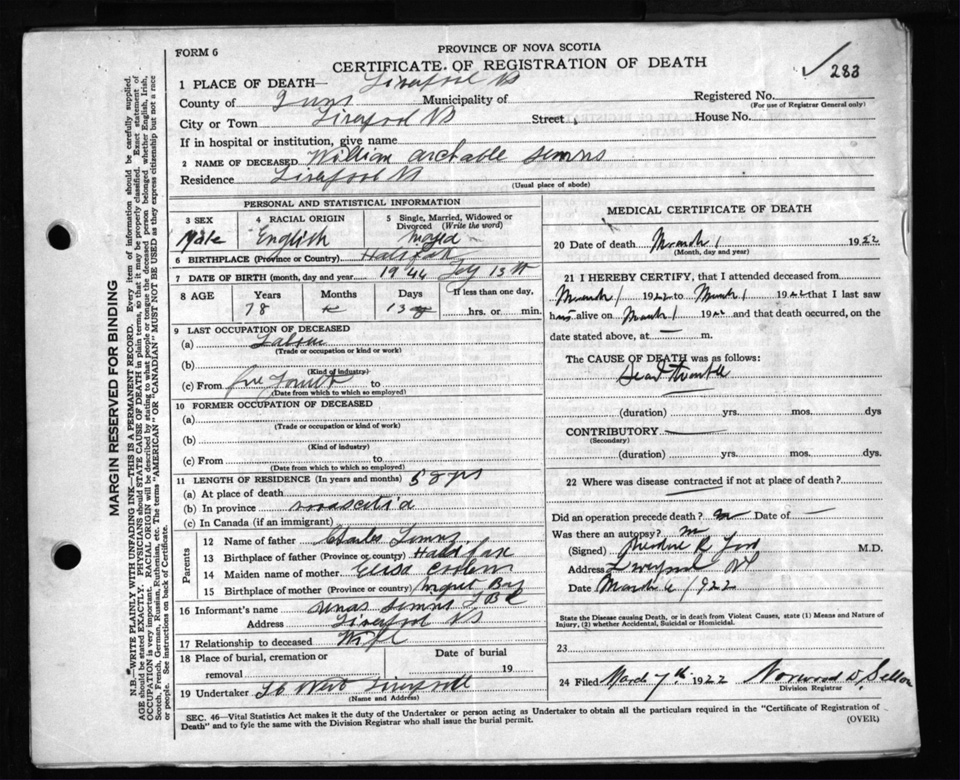 FORM 6
PROVINCE OF NOVA SCOTIA
CERTIFICATE OF REGISTRATION OF DEATH
283
1 PLACE OF DEATH— Liverpool NS
County of Municipality of Registered No.
(For use of Registrar General only)
City or Town Liverpool NS Street House No.
If in hospital or institution, give name
2 NAME OF DECEASED William Archable
Residence Liverpool NS
(Usual place of abode)
PERSONAL AND STATISTICAL INFORMATION
3 SEX 4 RACIAL ORIGIN 5 Single, Married, Widowed or Divorced (Write the word)
Male English
6 BIRTHPLACE (Province or Country) Halifax
7 DATE OF BIRTH (month, day and year) 19 44 13
8 AGE Years Months Days If less than one day,
78 13 hrs. or min.
9 LAST OCCUPATION OF DECEASED
(a)
(Trade or occupation or kind of work)
(b)
(Kind of industry)
(c) From to
(Date from which to which so employed)
10 FORMER OCCUPATION OF DECEASED
(a)
(Trade or occupation or kind of work)
(b)
(Kind of industry)
(c) From to
(Date from which to which so employed)
11 LENGTH OF RESIDENCE (In years and months) 58 yrs
(a) At place of death
(b) In province novascotia
(c) In Canada (if an immigrant)
Parents
12 Name of father Charles
13 Birthplace of father (Province or country) Halifax
14 Maiden name of mother
15 Birthplace of mother (Province or country) Bay
16 Informant's name
Address Liverpool NS
17 Relationship to deceased Wife
18 Place of burial, cremation or removal Date of burial 19
19 Undertaker
(Name and Address)
MEDICAL CERTIFICATE OF DEATH
20 Date of death March 1 1922
(Month, day and year)
21 I HEREBY CERTIFY, that I attended deceased from
March 1 1922 to March 1 1922 that I last saw
him alive on March 1 1922 and that death occurred, on the
date stated above, at — m.
The CAUSE OF DEATH was as follows:
(duration) yrs. mos. dys
CONTRIBUTORY
(Secondary)
(duration) yrs. mos. dys.
22 Where was disease contracted if not at place of death?
Did an operation precede death? Date of —
Was there an autopsy?
(Signed) M.D.
Address Liverpool NS
Date March 6 / 1922
State the Disease causing Death, or in death from Violent Causes, state (1) Means and Nature of
Injury, (2) whether Accidental, Suicidal or Homicidal.
23
24 Filed March 7th 1922 Norwood
Division Registrar
SEC. 46—Vital Statistics Act makes it the duty of the Undertaker or person acting as Undertaker to obtain all the particulars required in the "Certificate of Registration of
Death" and to fyle the same with the Division Registrar who shall issue the burial permit.
(OVER)
MARGIN RESERVED FOR BINDING
N.B.—WRITE PLAINLY WITH UNFADING INK—THIS IS A PERMANENT RECORD. Every item of information should be carefully supplied.
AGE should be stated EXACTLY. PHYSICIANS should STATE CAUSE OF DEATH in plain terms, so that it may be properly classified. Exact statement of
OCCUPATION is very important. RACIAL ORIGIN will be described by stating to what people or tongue the deceased person belonged whether English, Irish,
Scotch, French, German, Russian, Ruthenian, etc. The terms "AMERICAN" OR "CANADIAN" MUST NOT BE USED as they express citizenship but not a race
or people. See instructions on back of Certificate.